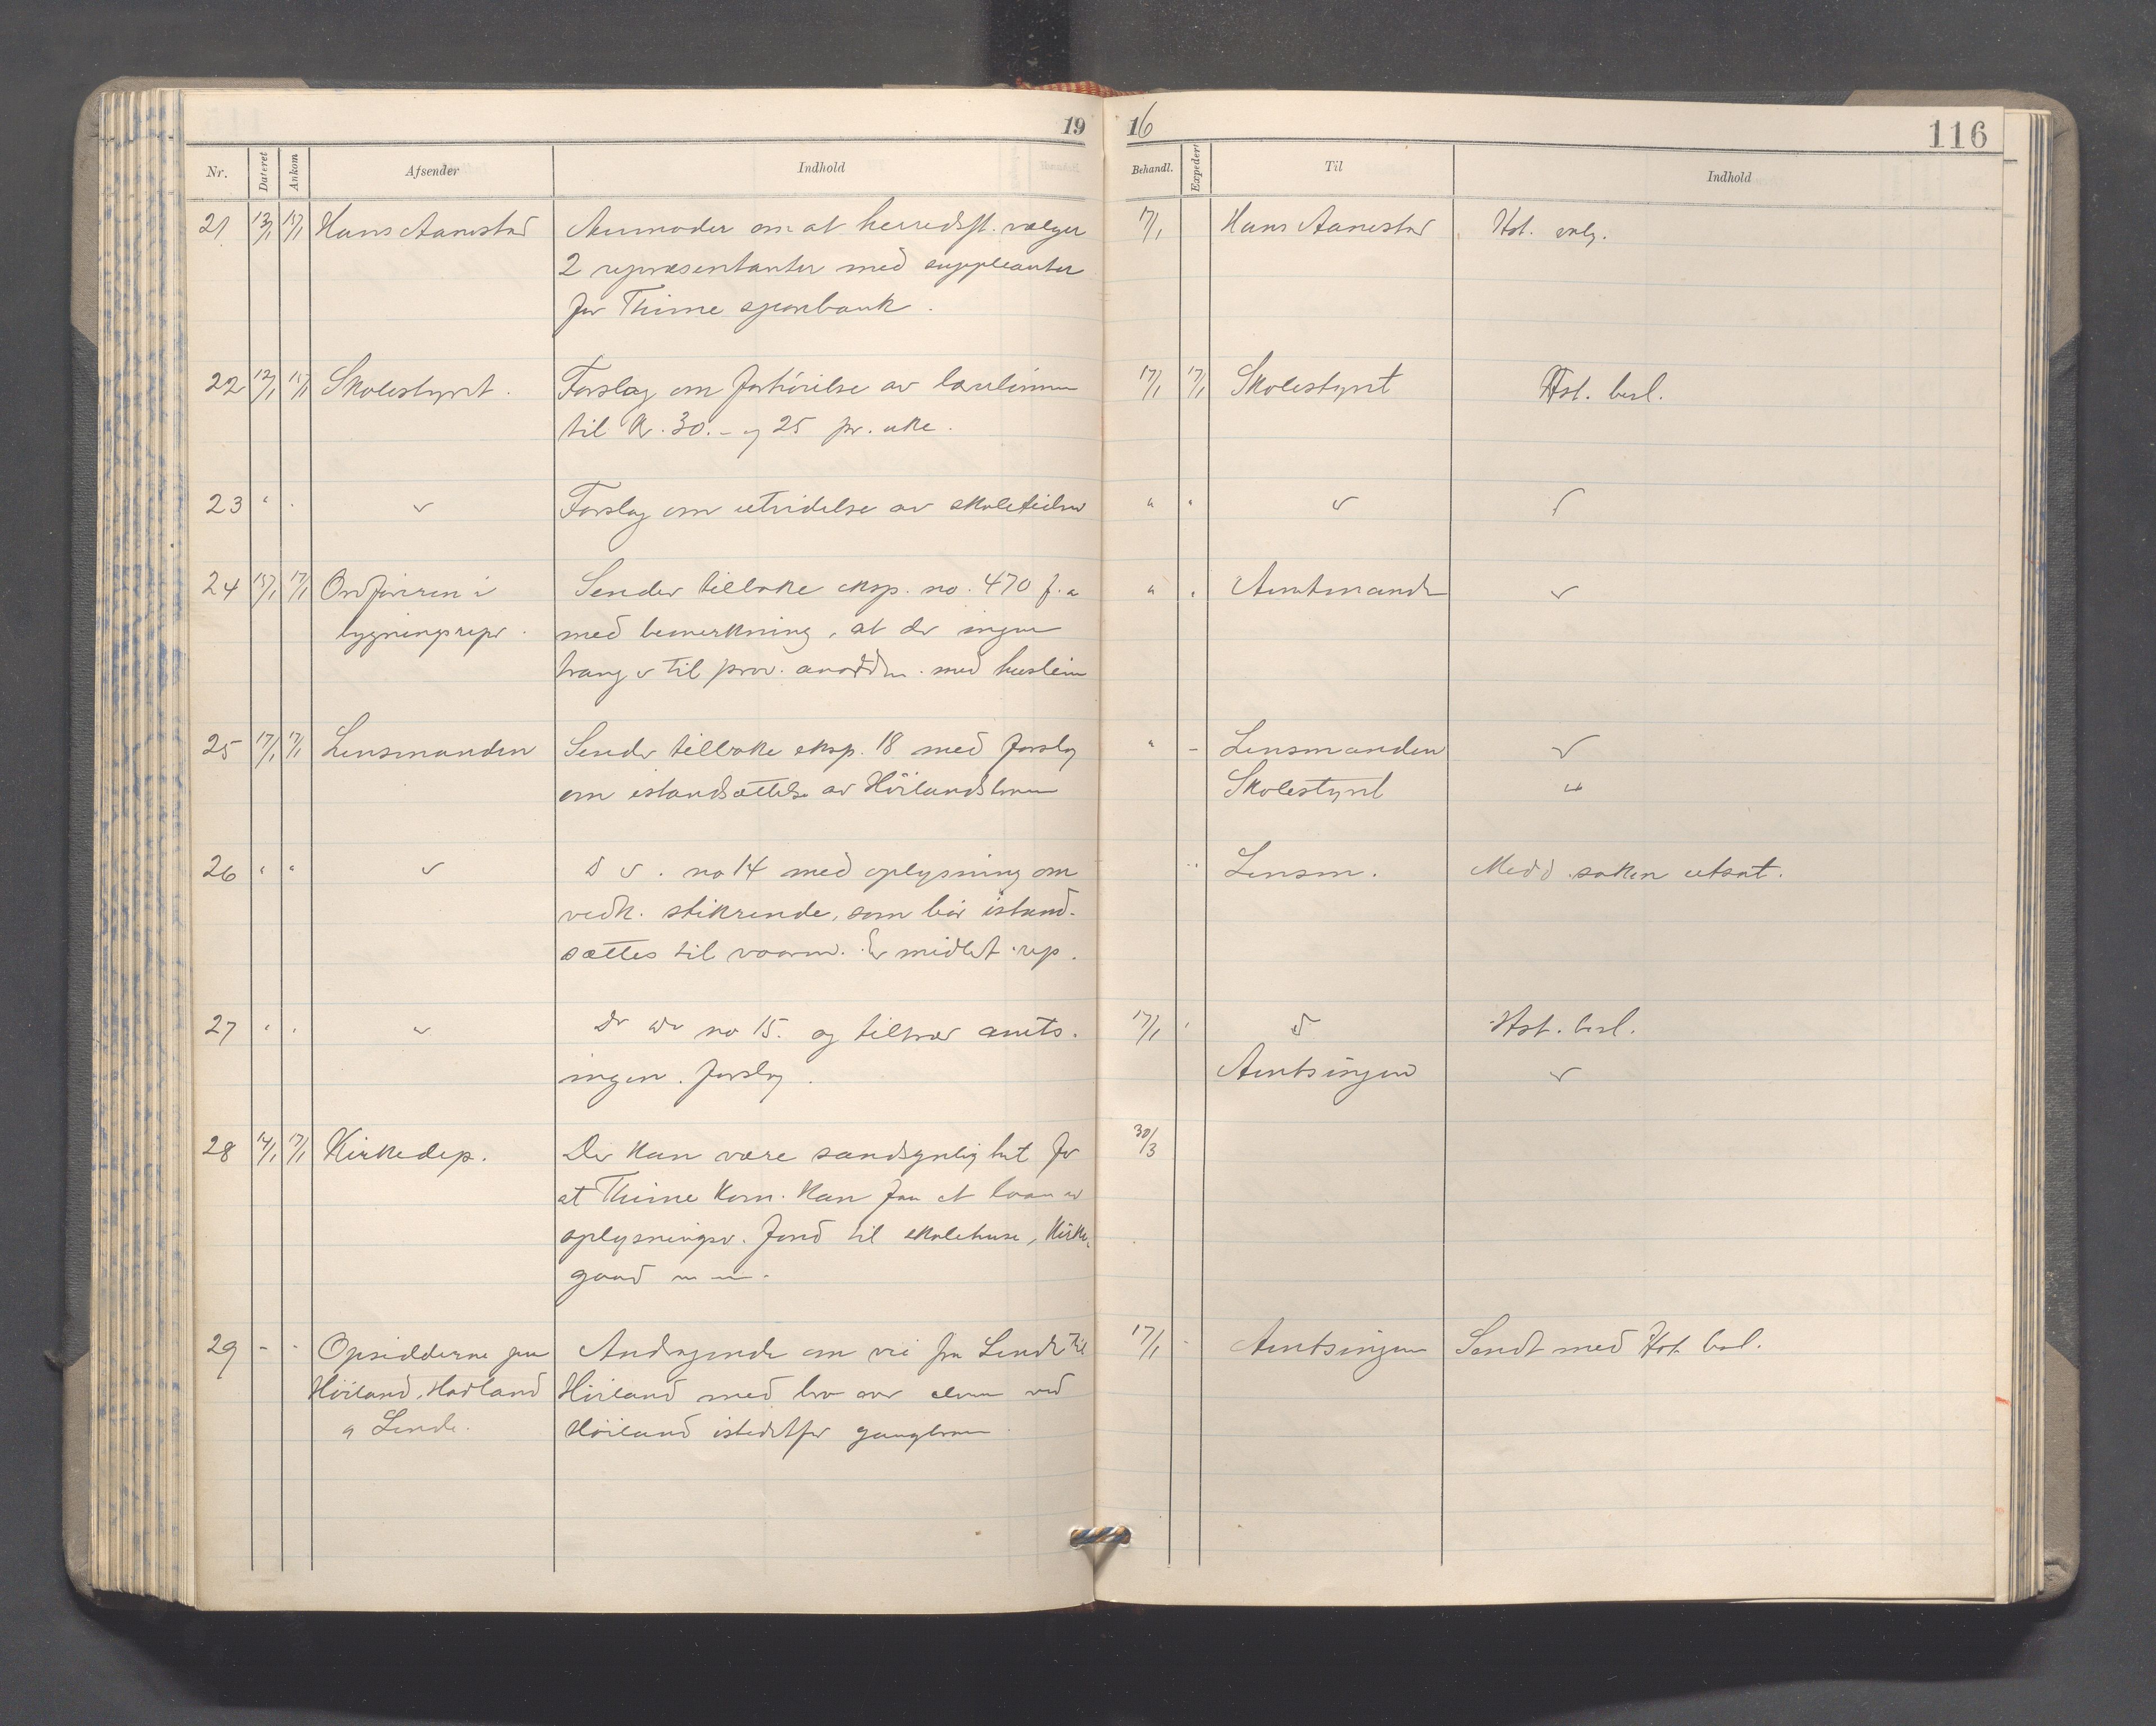 19
16
116
Nr. Dateret Ankom Afsender Indhold
Behandl. Expedert Til Indhold
21 13/1 15/1 Hans Aanestad Anmoder om at herredsst. vælger 17/1 Hans Aanestad Hst. valg.
2 representanter med suppleanter
for Thime sparebank.
22 12/1 15/1 Skolestyret. Forslag om forhöielse av lærelönnen 17/1 17/1 Skolestyret Hst. besl.
til Kr. 30.- og 25 pr. uke.
23 " " " Forslag om utvidelse av skoletiden " " " "
24 15/1 17/1 Ordföreren i Sender tilbake eksp. no. 470 f. a " " Amtmanden "
bygningsrepr. med bemerkning, at der ingen
trang er til prov. anordn. med husleien
25 17/1 17/1 Lensmanden Sender tilbake eksp. 18 med forslag " - Lensmanden "
om istandsættelse av Höilandsbroen Skolestyret "
26 " " " D o. no 14 med oplysning om " Lensm. Medd. saken utsat.
vedk. stikrende, som bör istand-
sættes til vaaren. Er midlert. rep.
27 " " " Do no 15. og tiltrær amts- 17/1 " " Hst. besl.
ingen. forslag. Amtsingen "
28 14/1 17/1 Kirkedep. Der kan være sandsynlighet for 30/3
at Thime kom. kan faa et laan av
oplysningsv. fond til skolehuse, kirke-
gaard m m.
29 - - Opsidderne paa Andragende om vei fra Lende til 17/1 - Amtsingen Sendt med Hst. besl.
Höiland, Hadland Höiland med bro over elven ved
og Lende. Höiland istedetfor gangbroen